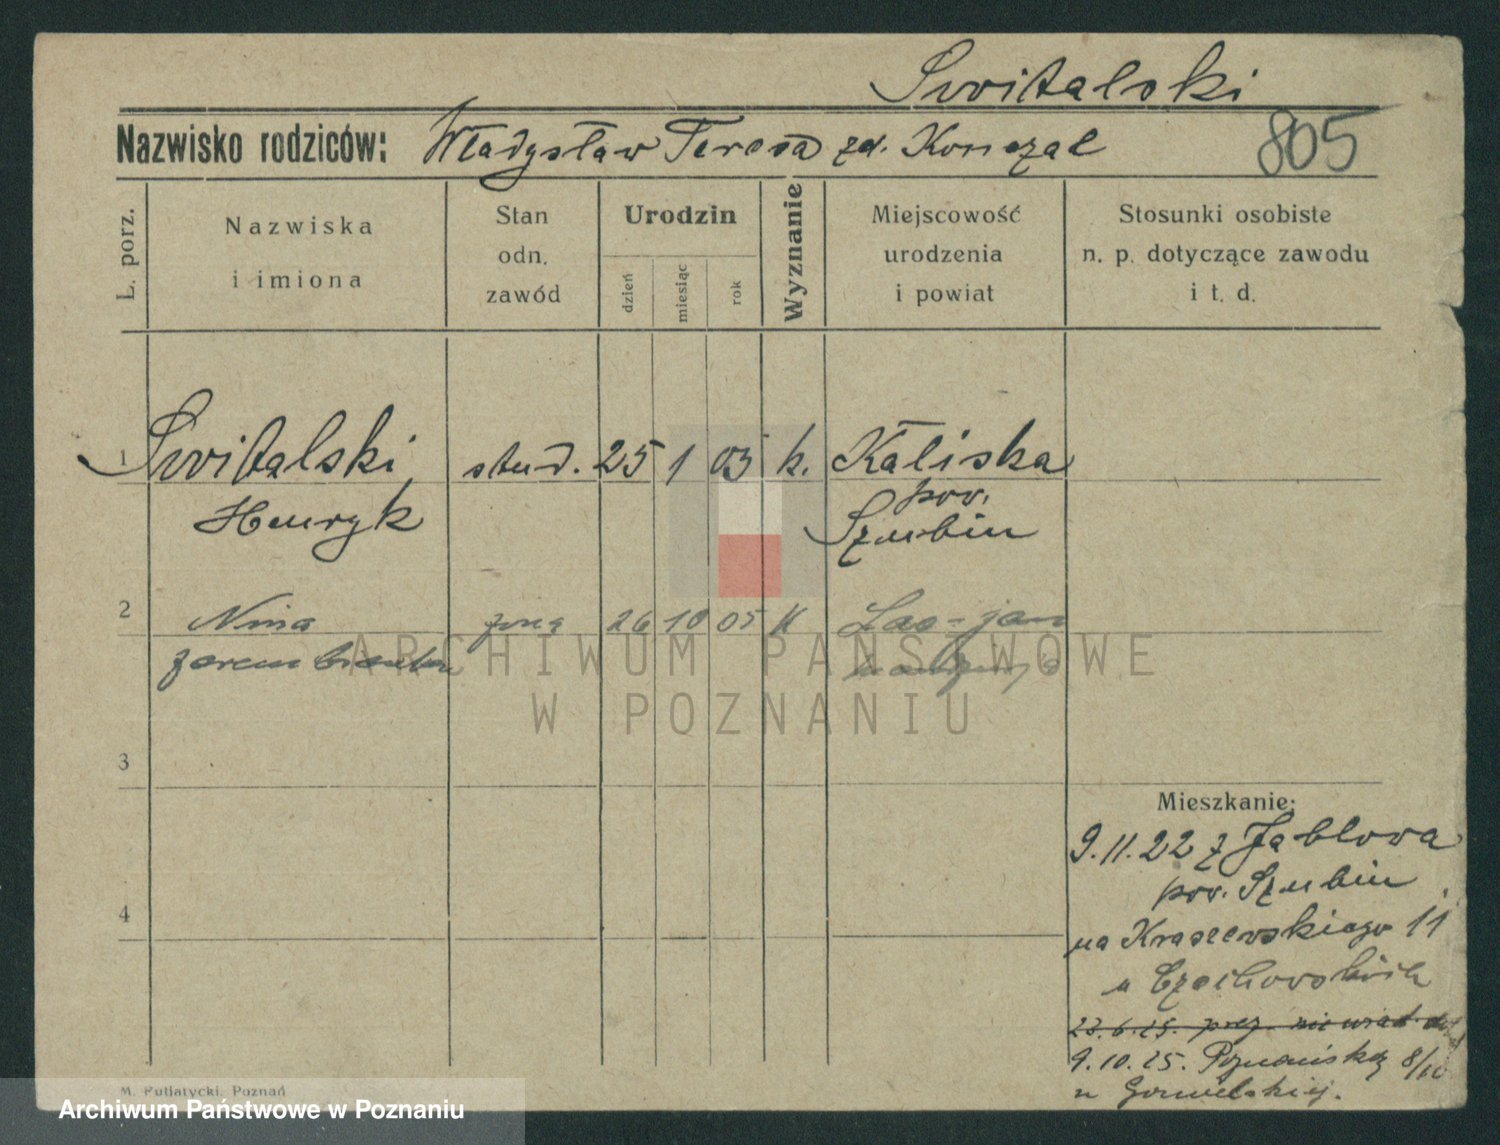 Switalski
Nazwisko rodziców: Władysław Teresa zd. Konczal
805
L. porz.
Nazwiska
i imiona
Stan
odn.
zawód
Urodzin
dzień
miesiąc
rok
Wyznanie
Miejscowość
urodzenia
i powiat
Stosunki osobiste
n. p. dotyczące zawodu
i t. d.
1 Switalski stud. 25 1 03 k. Kaliska
Henryk
pow.
Szubin
2 Nina żona 26 10 05 k Lao-jan
3
4
Mieszkanie:
9.11.22 z Jabłowa
pow. Szubin
na Kraszewskiego 11
u Czechowskich
23.6.25.
9.10.25. Poznańska 8/
u
M. Putiatycki, Poznań
ARCHIWUM PAŃSTWOWE
W POZNANIU
Archiwum Państwowe w Poznaniu